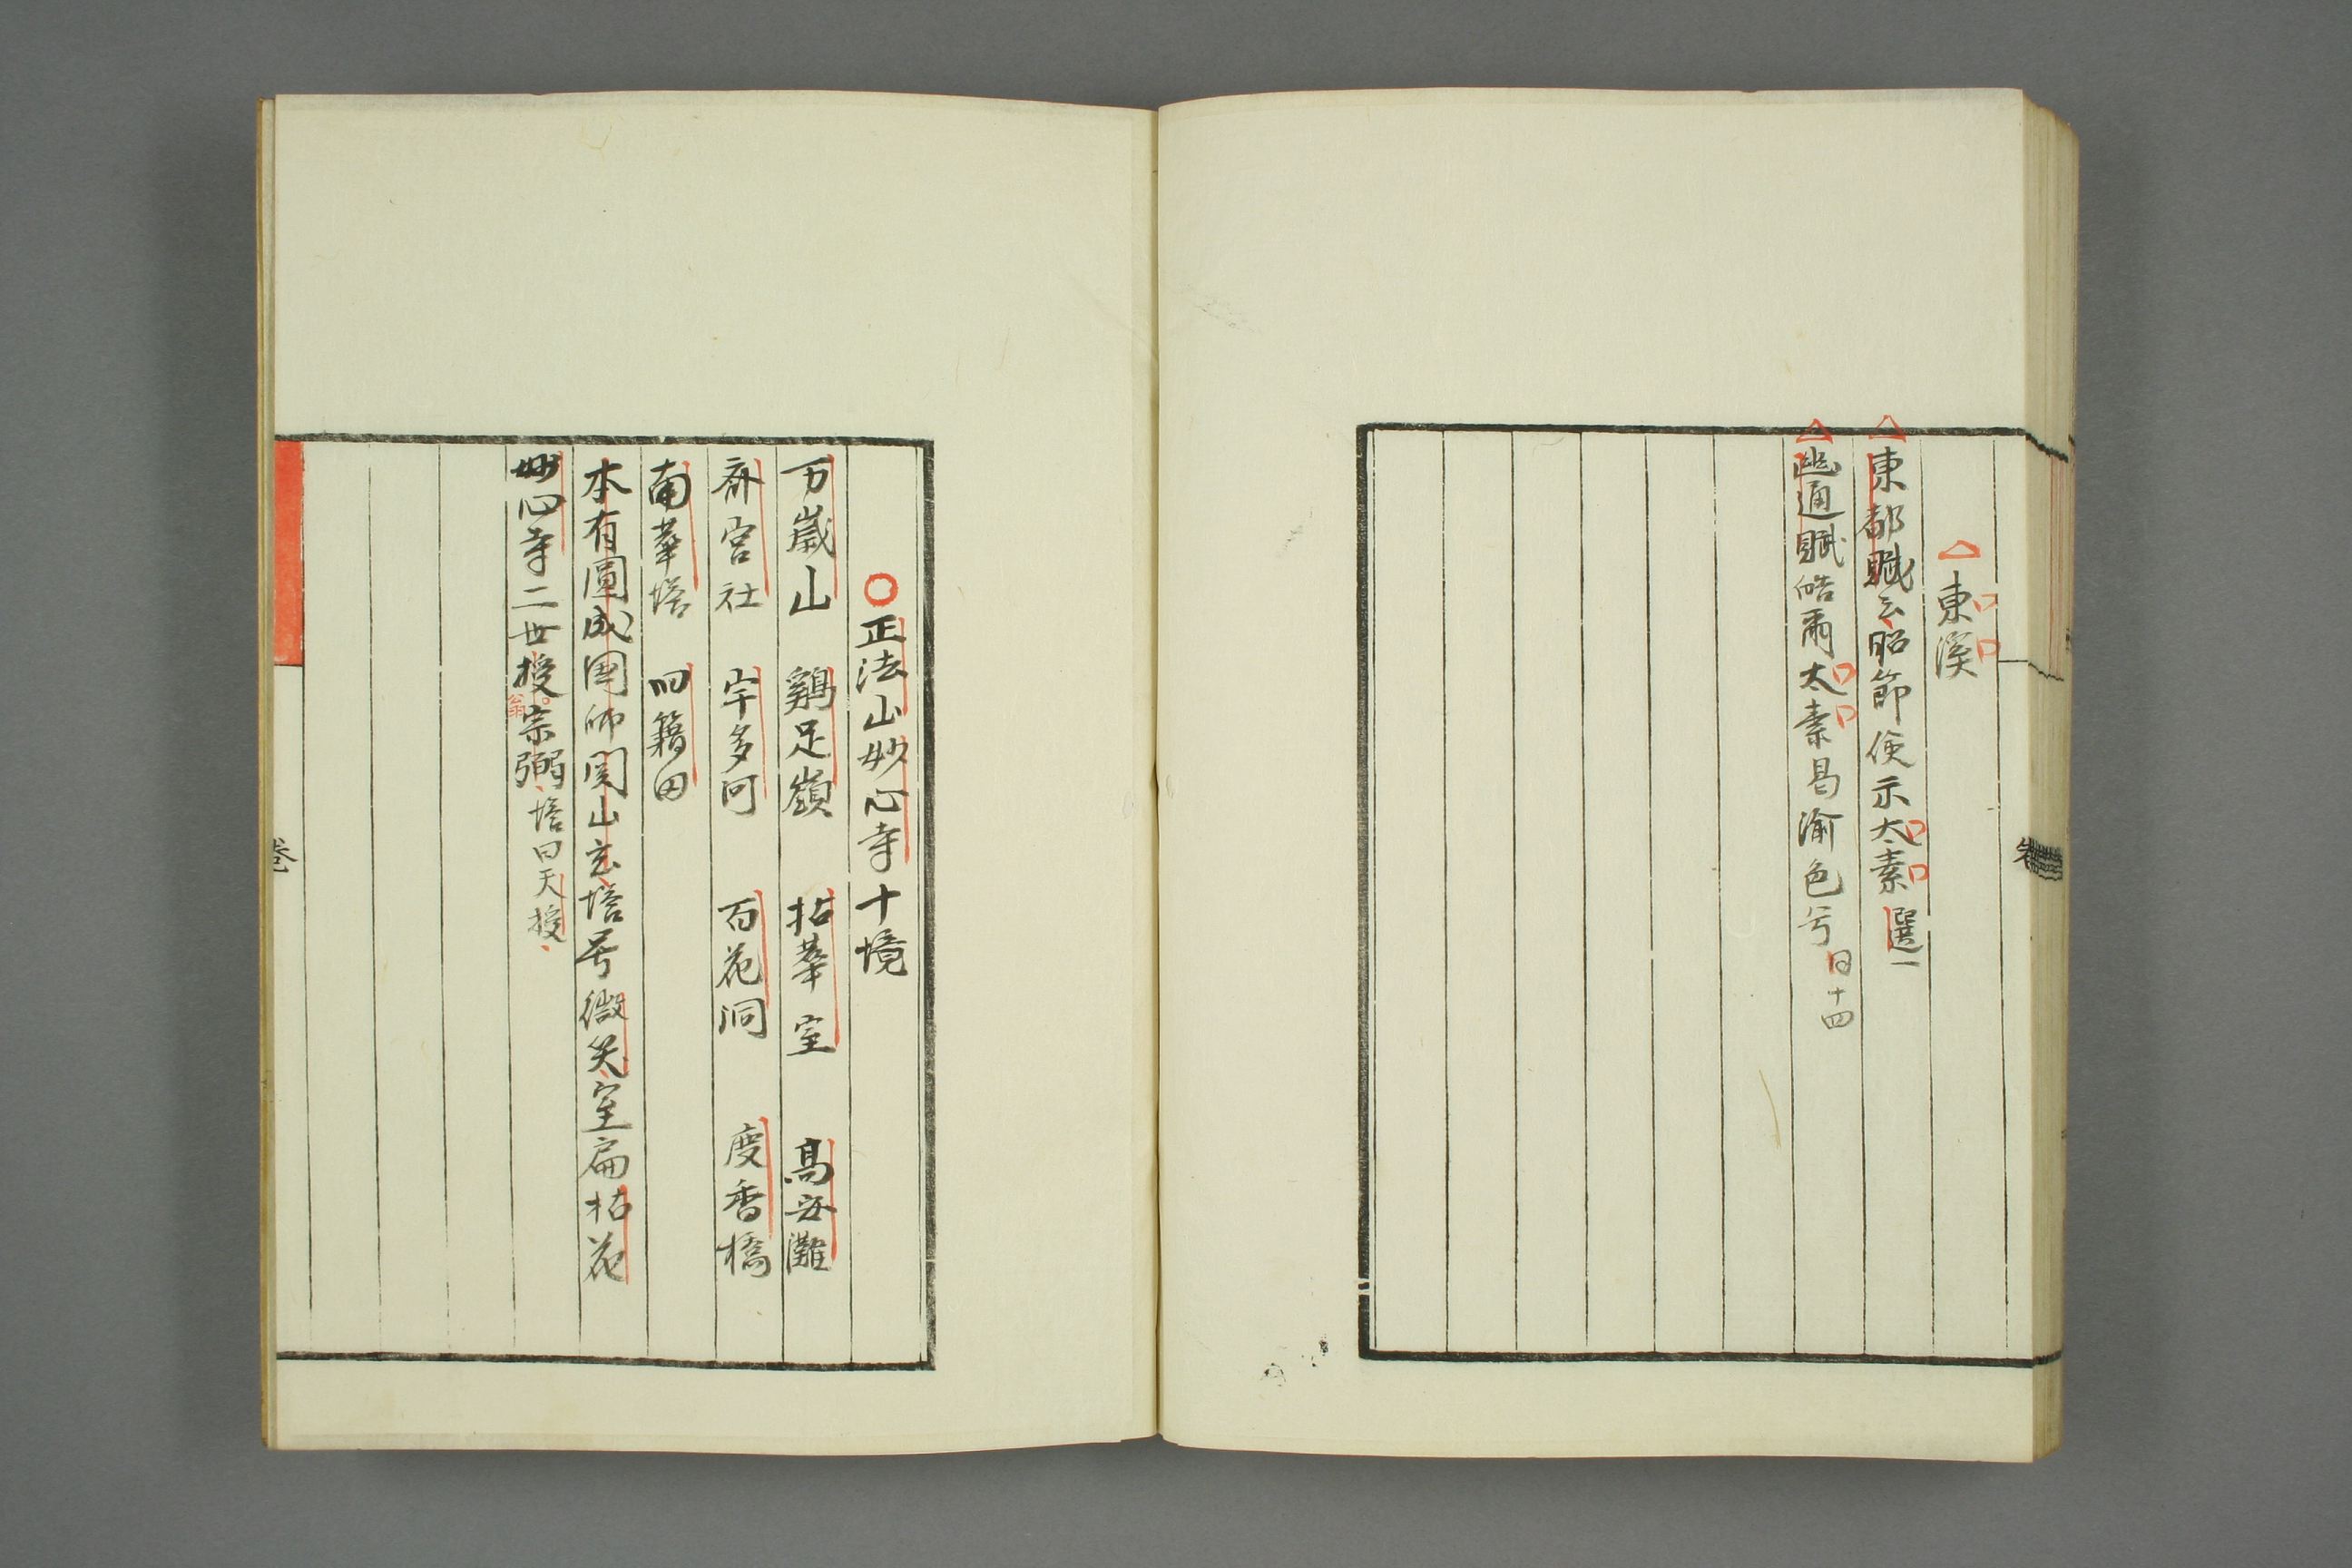 東溪
東都賦云昭節儉示太素 選一
幽通賦皓爾太素曷渝色兮 同十四
正法山妙心寺十境
万歳山 鷄足嶺 拈華室 高安灘
斎宮社 宇多河 百花洞 度香橋
南華塔 四籍田
本有圓成国師関山玄塔号微笑室扁拈花
妙心寺二世授宗弼塔曰天授
翁
巻